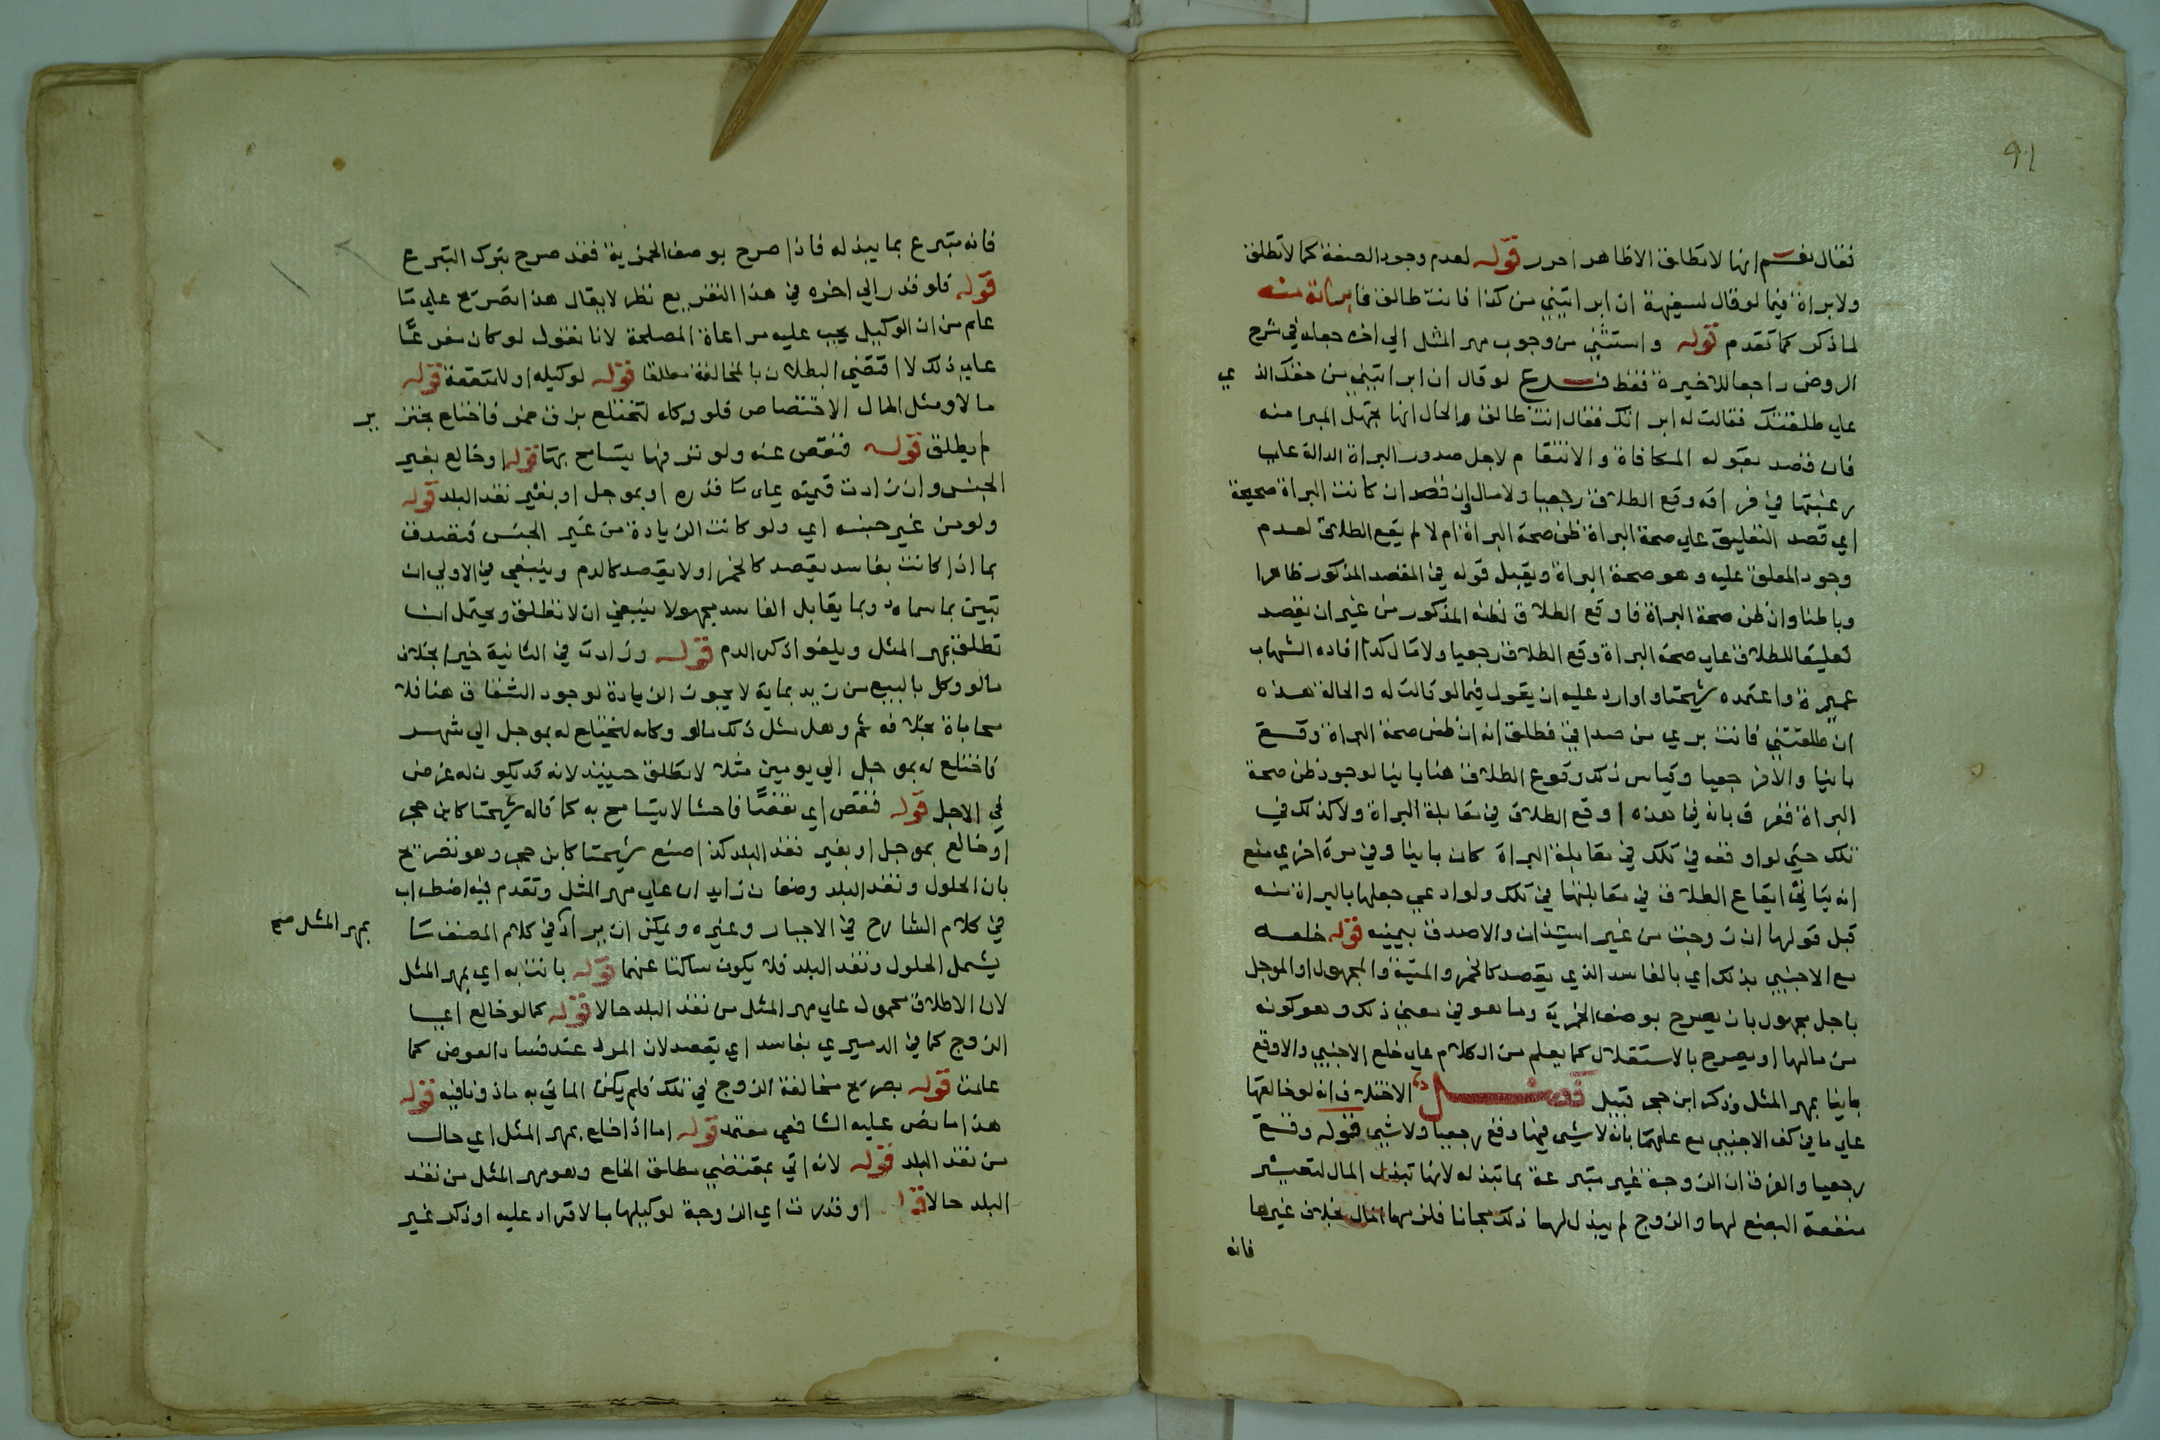 فقال نعم انها لا تطلق الا ظاهرا حرر قوله لعدم وجود الصفة كما لا تطلق
ولا براة فيما لو قال لسفيهة ان ابراتيني من كذا فانت طالق فابراته منه
لما ذكر كما تقدم قوله واستثني من وجوب مهر المثل الي اخره جعله في شرح
الروض راجعا للاخيرة فقط فرع لو قال ان ابراتيني من حقك الذي
علي طلقتك فقالت له ابراتك فقال انت طالق والحال انها تجهل المبرا منه
فان قصد بقوله المكافاة والانتقام لاجل صدور البراة الدالة علي
رغبتها في فراقه وقع الطلاق رجعيا ولا مال وان قصد ان كانت البراة صحيحة
اي قصد التعليق علي صحة البراة ظن صحة البراة ام لا لم يقع الطلاق لعدم
وجود المعلق عليه وهو صحة البراة ويقبل قوله في القصد المذكور ظاهرا
وباطنا وان ظن صحة البراة فاوقع الطلاق لظنه المذكور من غير ان يقصد
تعليقا للطلاق علي صحة البراة وقع الطلاق رجعيا ولا مال كذا افاده الشهاب
عميرة واعتمده شيخنا واورد عليه ان يقول فيما لو قالت له والحالة هذه
ان طلقتني فانت بري من صداقي فطلق انه ان ظن صحة البراة وقع
باينا والا فرجعيا وقياس ذلك وقوع الطلاق هنا باينا لوجود ظن صحة
البراة ففرق بانه في هذه اوقع الطلاق في مقابلة البراة ولا كذلك في
تلك حتي لو اوقعه في تلك في مقابلة البراة كان باينا وفي مرة اخري منع
انه يتاتي ايقاع الطلاق في مقابلتها في تلك ولو ادعي جهلها بالبراة منه
قبل قولها ان زوجت من غير استيذان والا صدق بيمينه قوله خلعه
مع الاجنبي بذلك اي بالفاسد الذي يقصد كالخمر والميتة والمجهول او الموجل
باجل مجهول بان يصرح بوصف الخمرية وما هو في معني ذلك وهو كونه
من مالها او يصرح بالاستقلال كما يعلم من الكلام علي خلع الاجنبي والا وقع
باينا بمهر المثل وذكر ابن حجر قبيل فصل الاختلاف انه لو خالعها
علي ما في كف الاجنبي مع علمها بانه لا شي فيها وقع رجعيا ولا شي قوله وقع
رجعيا والفرق ان الزوجة غير متبرعة بما تبذله لانها تبذل المال لتصير
منفعة البضع لها والزوج لم يبذل لها ذلك مجانا فلزمها المال بخلاف غيرها
فانه
فانه متبرع بما يبذله فاذا صرح بوصف الخمرية فقد صرح بترك التبرع
قوله فلو قدر الي اخره في هذا التفريع نظر لا يقال هذا تصريح علي ما
علم من ان الوكيل يجب عليه مراعاة المصلحة لانا نقول لو كان مفرعا
علي ذلك لاقتضي البطلان بالمخالفة مطلقا قوله لوكيله او لا منفعة قوله
مالا ومثل المال الاختصاص فلو وكله لتختلع بزق خمر فاختلع بخنزير
لم يطلق قوله فنقص عنه ولو نزرا فيها يتسامح بها قوله او خالع بغير
الجنس وان زادت قيمته علي ما قدره او بموجل او بغير نقد البلد قوله
ولو من غير جنسه اي ولو كانت الزيادة من غير الجنس فتصدق
بما اذا كانت بفاسد يقصد كالخمر او لا يقصد كالدم وينبغي في الاولي ان
تبين بما سماه وبما يقابل الفاسد مجهولا ينبغي ان لا تطلق ويحتمل ان
تطلق بمهر المثل ويلغو اذكر الدم قوله وزادت في الثانية خير بخلاف
ما لو وكل بالبيع من زيد بماية لا يجوز الزيادة لوجود الشقاق هنا فلا
محاباة بخلافه ثم وهل مثل ذلك ما لو وكله لتختلع له بموجل الي شهر
فاختلع له بموجل الي يومين مثلا لا تطلق حينيذ لانه قد يكون له غرض
في الاجل قوله فنقص اي نقصا فاحشا لا يتسامح به كما قاله شيخنا كابن حجر
او خالع بموجل او بغير نقد البلد كذا صنع شيخنا كابن حجر وهو تصريح
بان الحلول ونقد البلد وصفان زايدان علي مهر المثل وتقدم فيه اضطراب
في كلام الشارح في الاجبار وغيره ويمكن ان يراد في كلام المصنف ما بمهر المثل صح
يشمل الحلول ونقد البلد فلا يكون ساكتا عنهما قوله بانت به اي بمهر المثل
لان الاطلاق محمول علي مهر المثل من نقد البلد حالا قوله كما لو خالع اي
الزوج كما في الدميري بفاسد اي يقصد لان المرد عند فساد العوض كما
علمت قوله بصريح مخالفة الزوج في تلك فلم يكن الماتي به ماذونا فيه قوله
هذا ما نص عليه الشافعي معتمد قوله اما اذا خلع بمهر المثل اي حال
من نقد البلد قوله لانه اتي بمقتضي مطلق الخلع وهو مهر المثل من نقد
البلد حالا قوله او قدرت اي الزوجة لوكيلها بالاقتراد عليه او ذكر غير